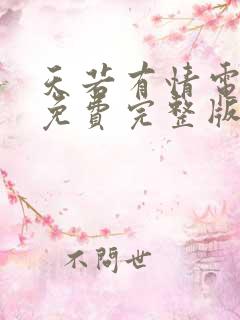 天若有情電
免費完整版
不問世